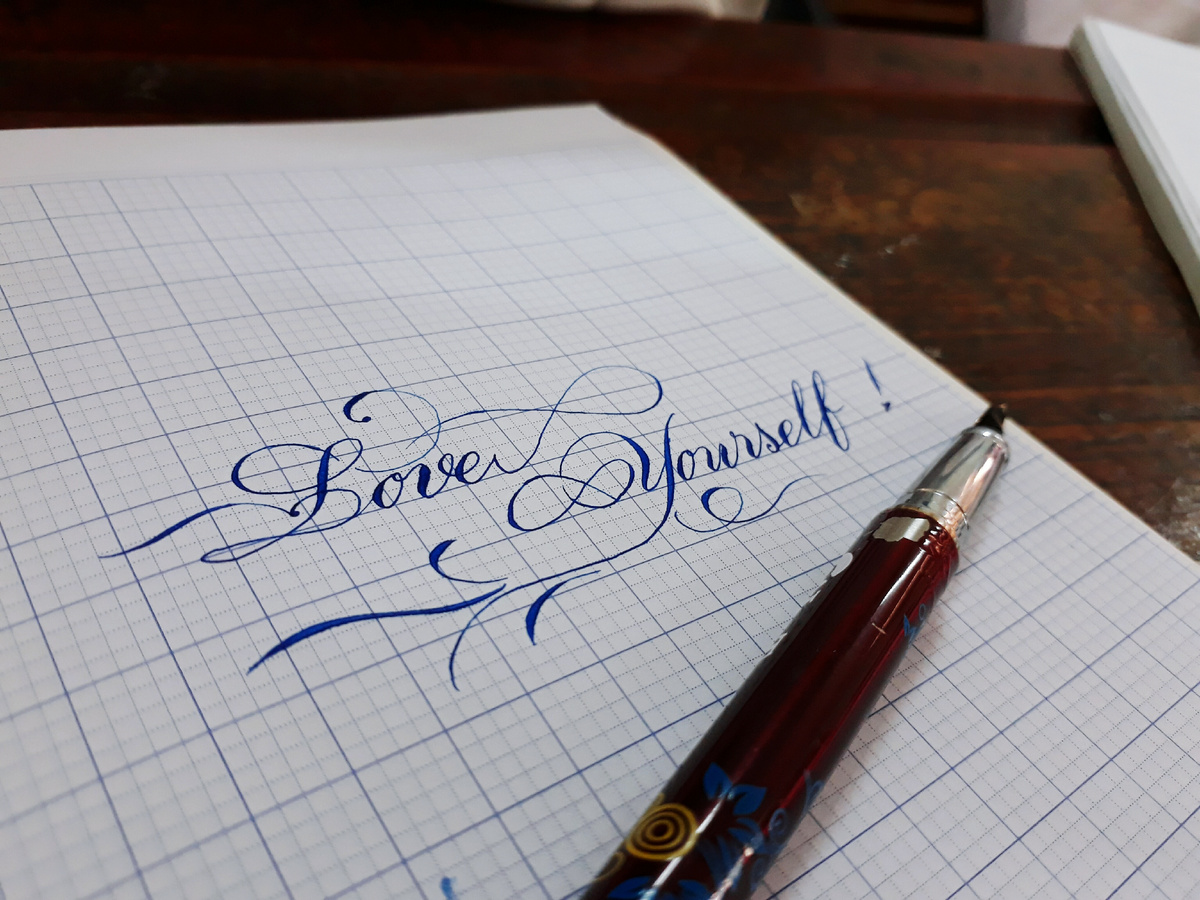 Love Yourself !